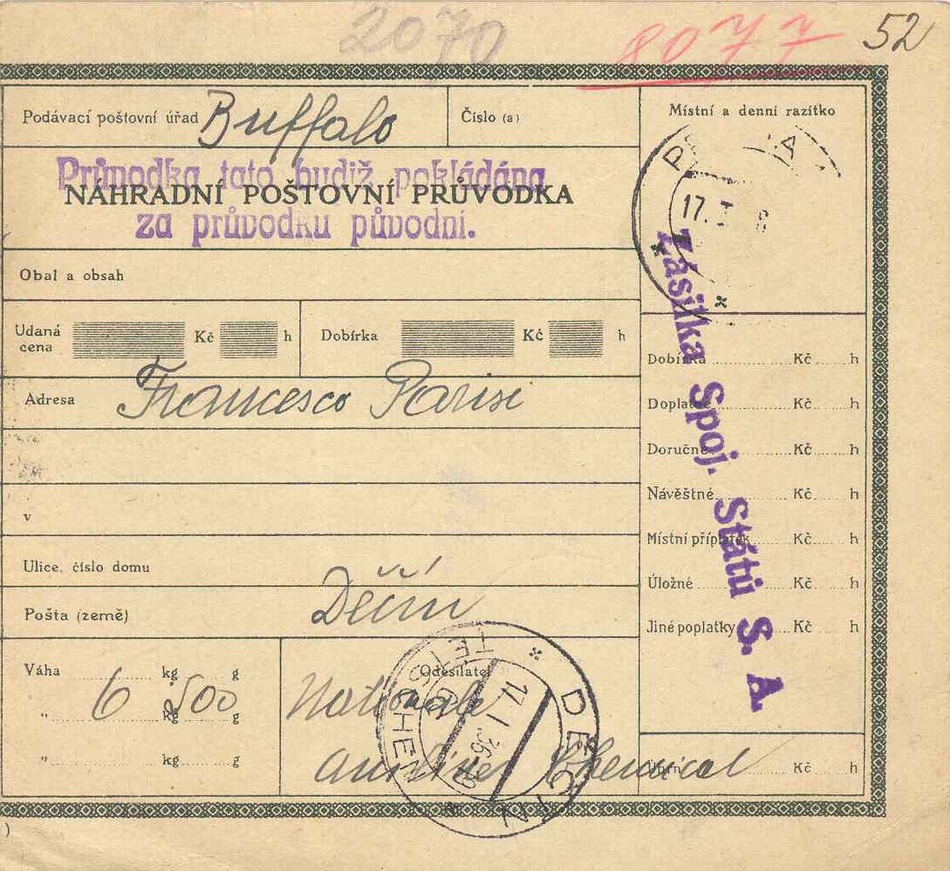 2070
8077
52
Podávací poštovní úřad Buffalo
Číslo (a)
Místní a denní razítko
Průvodka tato budiž pokládána
NÁHRADNÍ POŠTOVNÍ PRŮVODKA
za průvodku původní.
17. I
Obal a obsah
Udaná cena Kč h
Dobírka Kč h
Zásilka Spoj. Států S. A
Adresa Francesco Parisi
v
Ulice, číslo domu
Pošta (země) Děčín
Dobírka Kč h
Doplatné Kč h
Doručné Kč h
Návěštné Kč h
Místní příplatek Kč h
Úložné Kč h
Jiné poplatky Kč h
Kč h
Váha kg g
" 6 kg 500 g
" kg g
Odesílatel
Nationale
Chemical
DĚČÍN
TETSCHEN
17. I. 36
)